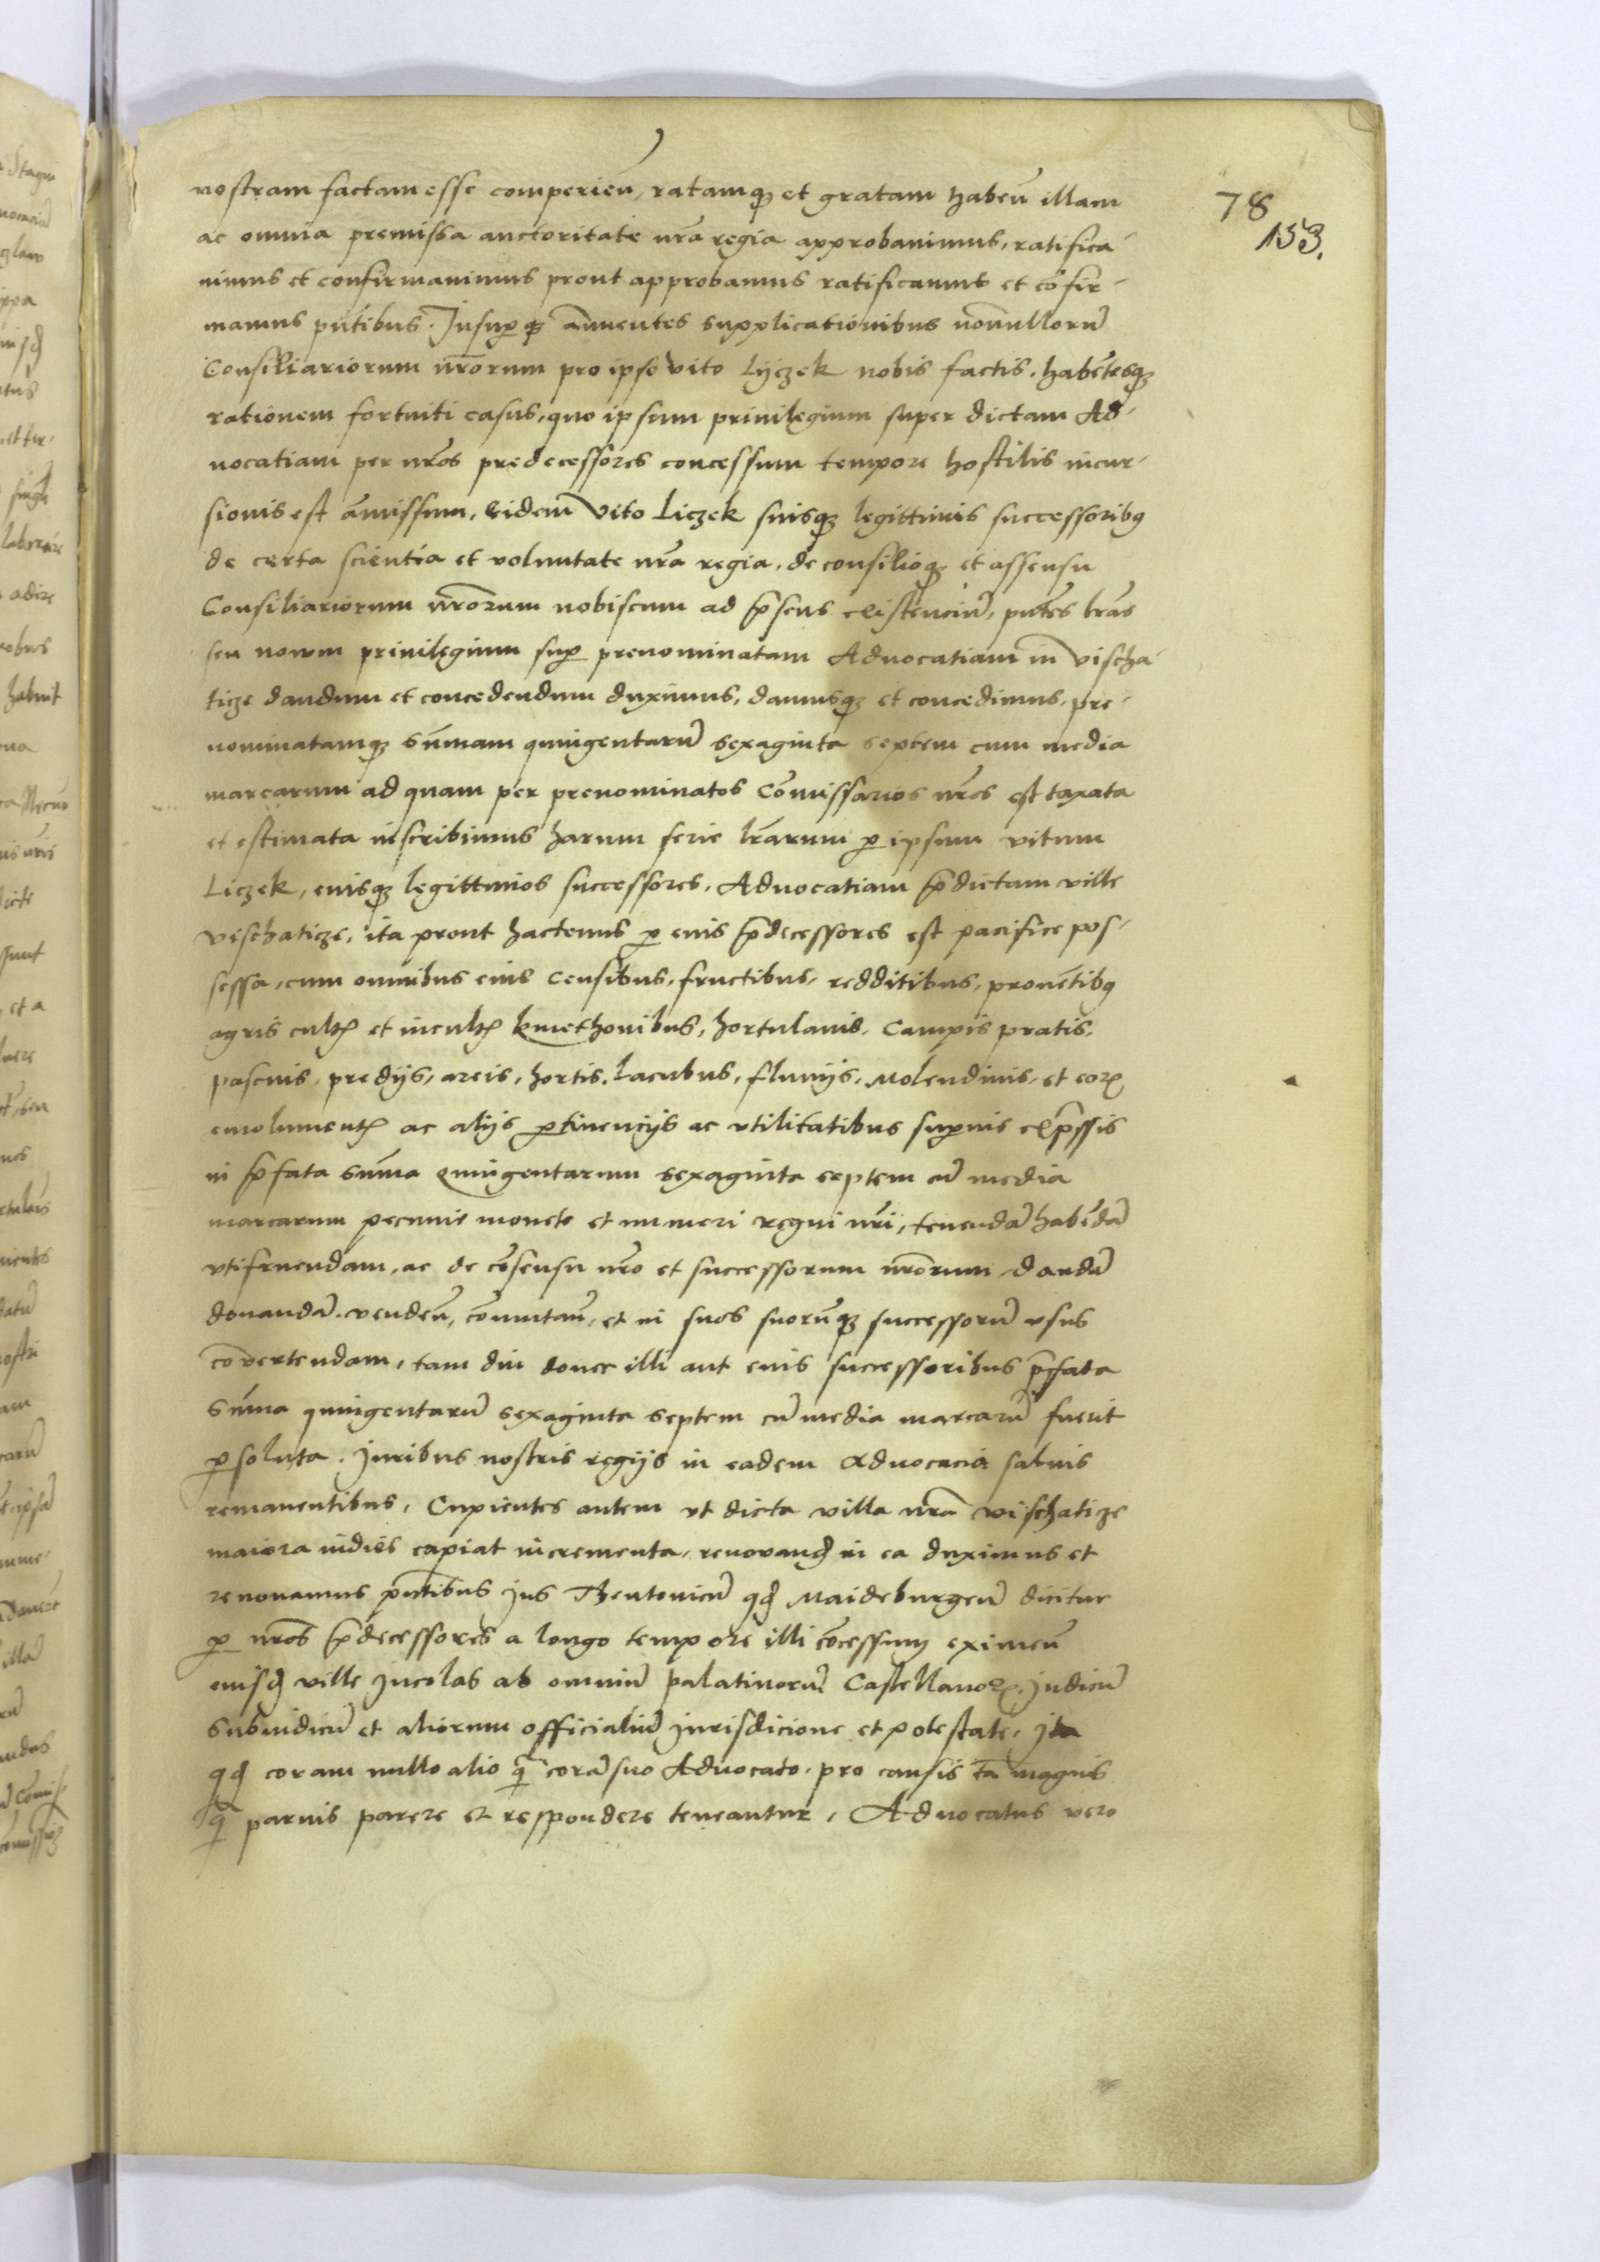 78
153.
nostram factam esse comperien̄, ratamqꝫ et gratam haben̄ illam
ac omnia premissa auctoritate nr̄a regia approbauimus, ratifica-
uimus et confirmauimus prout approbamus ratificamus et cōfir-
mamus pn̄tibus. Insuꝑqꝫ an̄uentes supplicationibus nonnullorū
Consiliariorum nr̄orum pro ipso vito Lyczek nobis factis. habētesqꝫ
rationem fortuiti casus, quo ipsum priuilegium super dictam Ad-
uocatiam per nr̄os predecessores concessum tempore hostilis incur-
sionis est amissum, eidem Vito Liczek suisqꝫ legittimis successoribꝰ
de certa scientia et voluntate nr̄a regia, de consilioqꝫ et assensu
Consiliariorum nr̄orum nobiscum ad p̄sens existenciū, pn̄tes lr̄as
seu nouum priuilegium suꝑ prenominatam Aduocatiam in vischa-
ticze dandum et concedendum duximus, damusqꝫ et concedimus. pre-
nominatamqꝫ sum̄am quingentarū sexaginta septem cum media
marcarum ad quam per prenominatos Com̄issarios nr̄os est taxata
et estimata inscribimus harum serie lr̄arum ꝑ ipsum vitum
Liczek, eiusqꝫ legittimos successores. Aduocatiam p̄dictam ville
vischaticze, ita prout hactenus ꝑ eius p̄decessores est pacifice pos-
sessa, cum omnibus eius Censibus, fructibus, redditibus, prouētibꝰ
agris cultꝭ et incultꝭ kmethonibus, hortulanis. Campis pratis.
pascuis, predijs, areis, hortis. Lacubus, fluuijs, Molendinis, et eoꝝ
emolumentꝭ ac alijs ꝑtinencijs ac vtilitatibus suꝑius exp̄ssis
in p̄fata sum̄a quingentarum sexaginta septem cū media
marcarum pecunie monete et numeri regni nr̄i, tenendā habēdā
vtifruendam, ac de cōsensu nr̄o et successorum nr̄orum dandā
donandā. venden̄, com̄utan̄, et in suos suorūqꝫ successorū vsus
cōuertendam, tam diu donec illi aut eius successoribus p̄fata
sum̄a quingentarū sexaginta septem cū media marcarū fuerit
ꝑsoluta. Juribus nostris regijs in eadem Aduocacia saluis
remanentibus, Cupientes autem vt dicta villa nr̄a vischaticze
maiora indies capiat incrementa, renouand̄ in ea duximus et
renouamus pn̄tibus Jus Theutonicū qd̄ Maideburgen̄ dicitur
ꝑ nr̄os p̄decessores a longo tempore illi cōcessum eximen̄
eiusd̄ ville Jncolas ab omniū palatinorū Castellanoꝝ Judicū
Subiudicū et aliorum officialiū Jurisdicione et potestate, Jta
qd̄ coram nullo alio q̄ corā suo Aduocato. pro causis tā magnis
q̄ paruis parere et respondere teneantur, Aduocatus vero